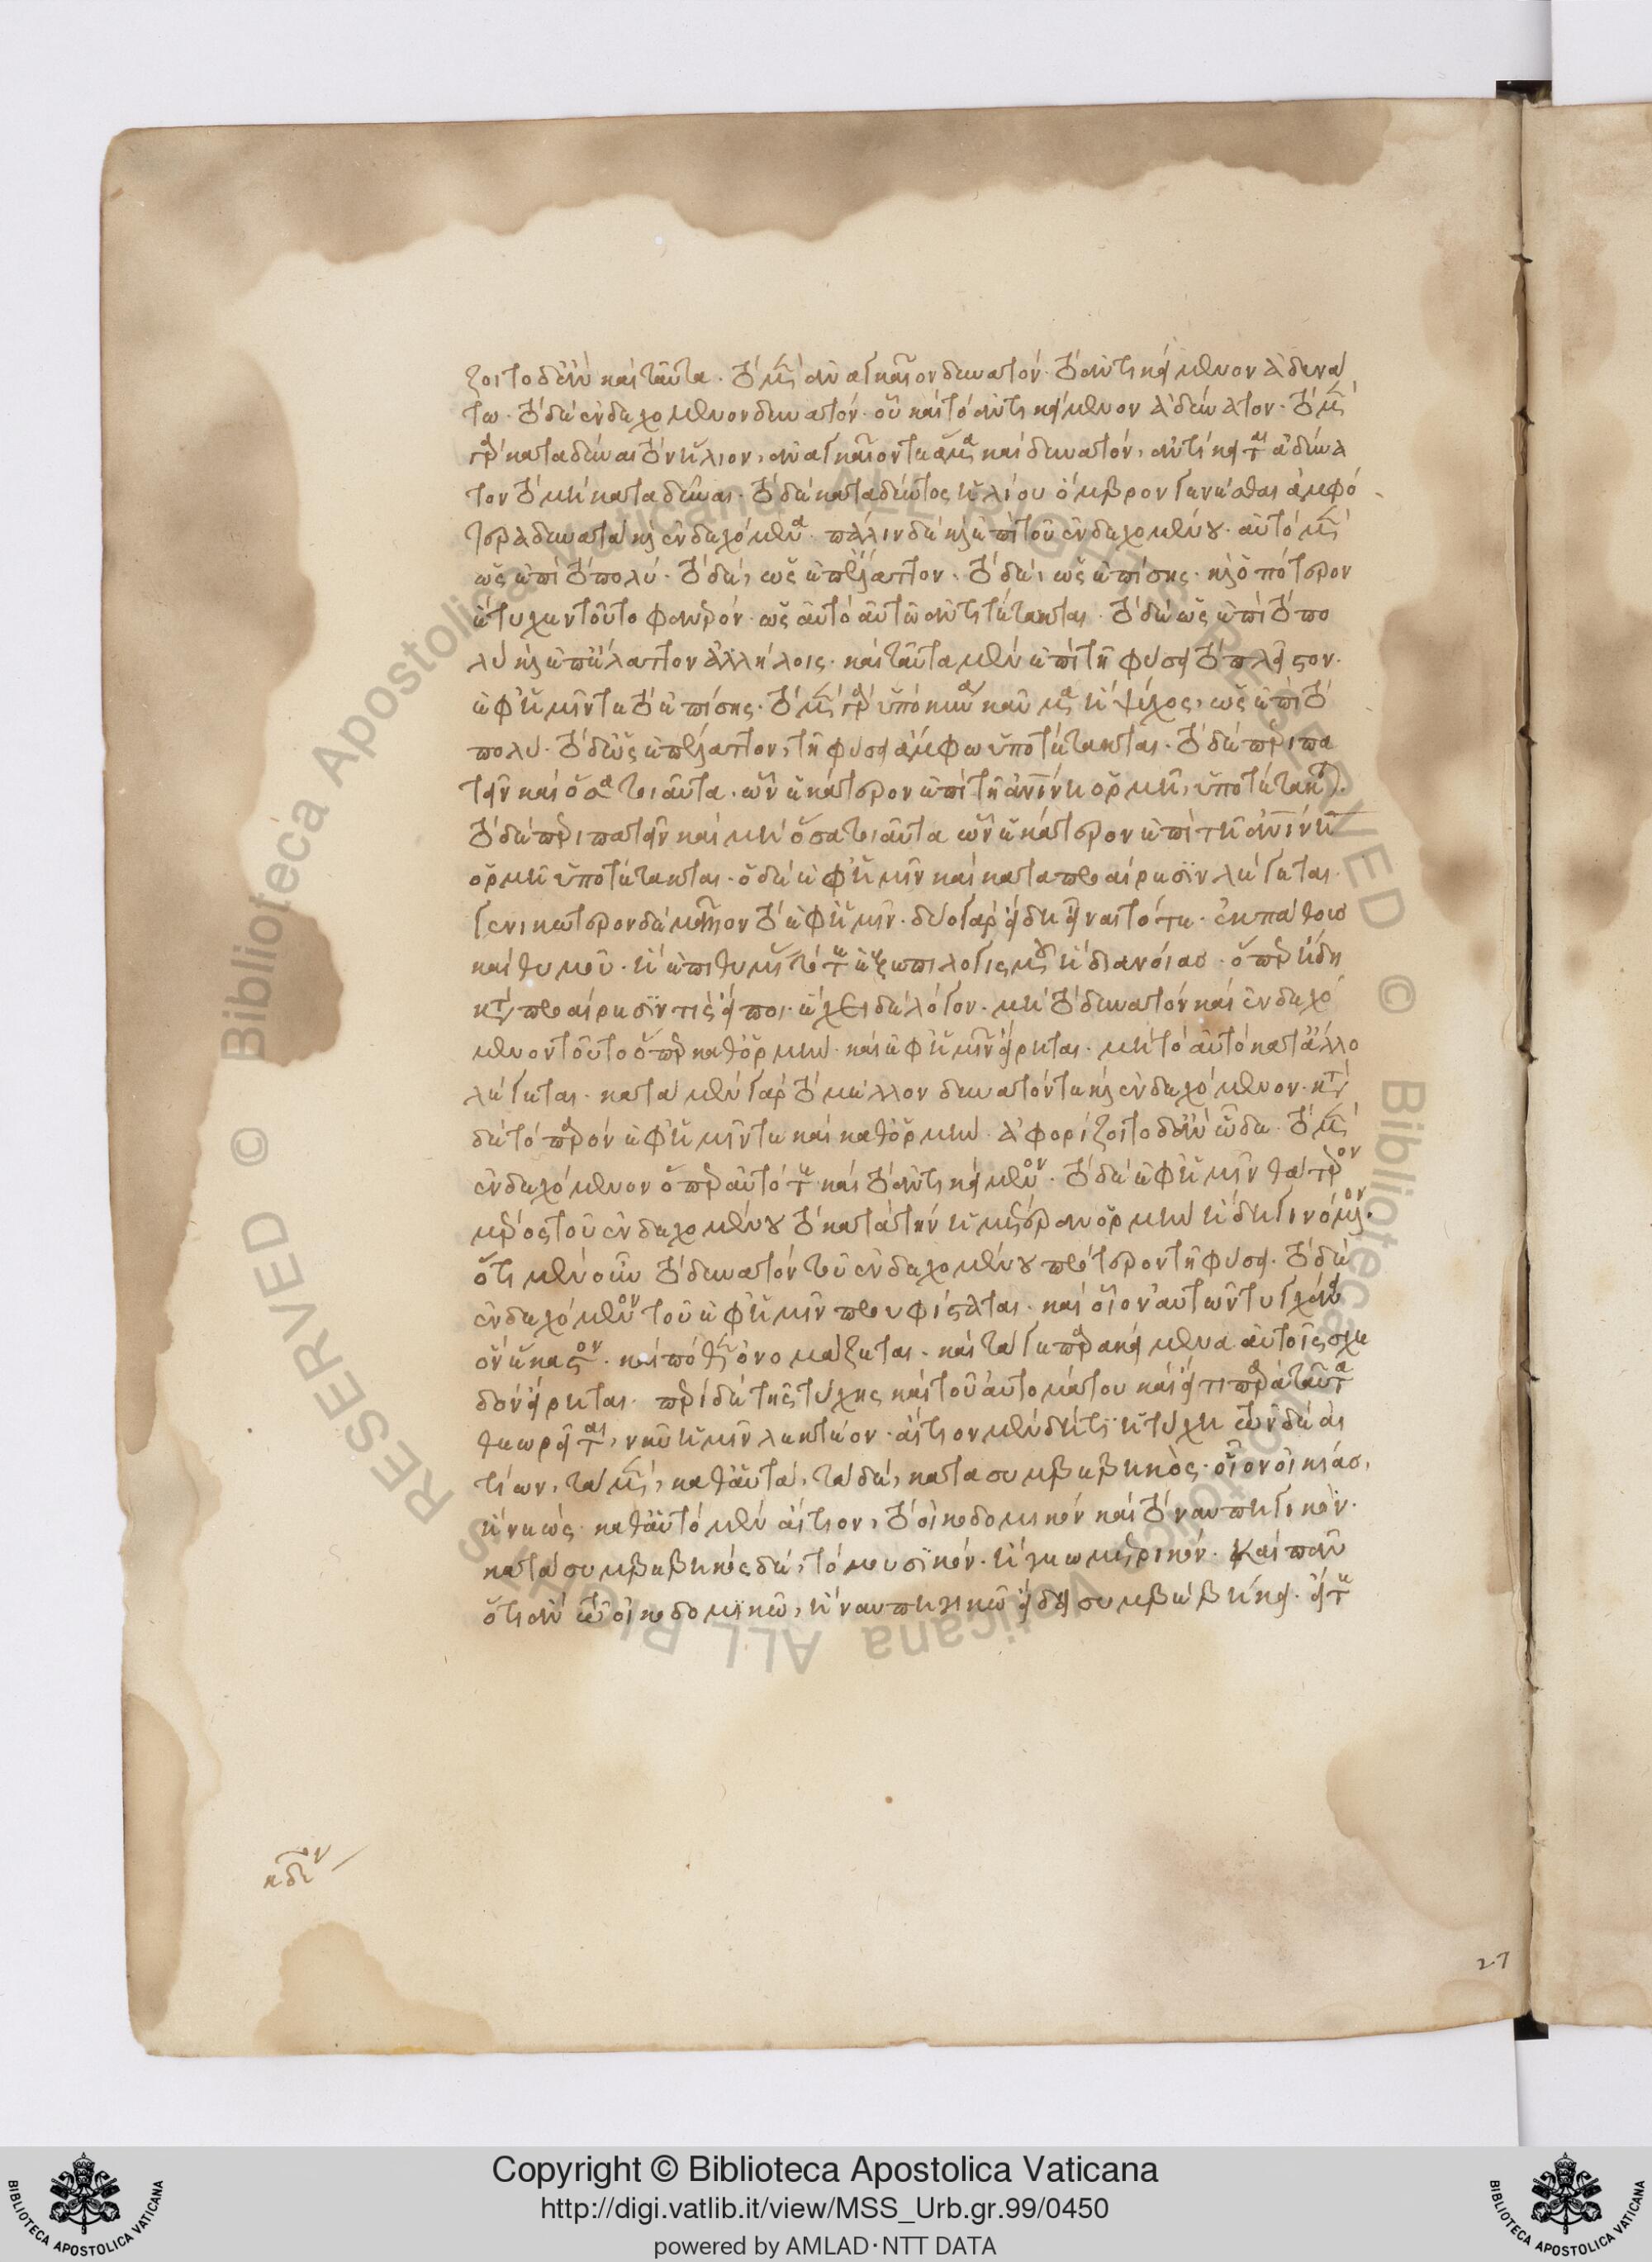 ζοιτο δ' ἂν καὶ ταῦτα· τὸ μὲν ἀναγκαῖον δυνατόν· τὸ ἀντικείμενον ἀδυνά
τω· τὸ δὲ ἐνδεχόμενον δυνατόν· οὗ καὶ τὸ ἀντικείμενον ἀδύνατον· τὸ μὲν
γὰρ καταδῦναι τὸν ἥλιον, ἀναγκαῖόν τε ἅμα καὶ δυνατόν, ἀντίκειται ἀδύνα
τον τὸ μὴ καταδῦναι· τὸ δὲ καταδύντος ἡλίου ὄμβρον γενέσθαι ἀμφό
τερα δυνατὰ καὶ ἐνδεχόμενα· πάλιν δὲ καὶ ἐπὶ τοῦ ἐνδεχομένου· αὐτὸ μὲν
ὡς ἐπὶ τὸ πολύ· τὸ δὲ, ὡς ἐπ' ἔλαττον· τὸ δὲ, ὡς ἐπίσης· καὶ ὁπότερον
ἔτυχεν τοῦτο φανερόν· ὡς αὐτὸ αὑτῶ ἀντιτέτακται· τὸ δὲ ὡς ἐπὶ τὸ πο
λὺ καὶ ἐπ' ἔλαττον ἀλλήλοις· καὶ ταῦτα μὲν ἐπὶ τῆ φύσει τὸ πλεῖστον·
ἐφ' ἡμῖν τε τὸ ἐπίσης· τὸ μὲν γὰρ ὑπὸ κύνα καῦμα ἢ ψύχος, ὡς ἐπὶ τὸ
πολύ· τὸ δ' ὡς ἐπ' ἔλαττον, τῆ φύσει ἄμφω ὑποτέτακται· τὸ δὲ περιπα
τεῖν καὶ ὅσα τοιαῦτα· ὧν ἑκάτερον ἐπὶ τῆ ἀνίνη ὁρμῆ, ὑποτέτακται·
τὸ δὲ περιπατεῖν καὶ μὴ ὅσα τοιαῦτα ὧν ἑκάτερον ἐπὶ τῆ ἀνίνη
ὁρμῆ ὑποτέτακται· ὃ δὲ ἐφ' ἡμῖν καὶ κατὰ προαίρεσιν λέγεται·
γενικώτερον δὲ μᾶλλον τὸ ἐφ' ἡμῖν· δύο γὰρ εἴδη εἶναι τότε· ἐκ πάθους
καὶ θυμοῦ· ἢ ἐπιθυμίας τό τε ἐξ ἐπιλογισμοῦ ἢ διανοίας· ὅπερ ἤδη
κατὰ προαίρεσιν τὶς εἴποι· ἔχει δὲ λόγον· μὴ τὸ δυνατὸν καὶ ἐνδεχό
μενον τοῦτο ὅπερ καθ' ὁρμὴν· καὶ ἐφ' ἡμῖν εἴρηται· μὴ τὸ αὐτὸ κατ' ἄλλο
λέγεται· κατὰ μὲν γὰρ τὸ μέλλον δυνατόν τε καὶ ἐνδεχόμενον· κατὰ
δὲ τὸ παρὸν ἐφ' ἡμῖν τε καὶ καθ' ὁρμήν· ἀφορίζοιτο δ' ἂν ὧδε· τὸ μὲν
ἐνδεχόμενον ὅπερ αὐτό τε καὶ τὸ ἀντικείμενον· τὸ δὲ ἐφ' ἡμῖν θάτερον
μέρος τοῦ ἐνδεχομένου τὸ κατὰ τὴν ἡμετέραν ὁρμὴν ἤδη γινόμενον·
ὅτι μὲν οὖν τὸ δυνατὸν τοῦ ἐνδεχομένου πρότερον τῆ φύσει· τὸ δὲ
ἐνδεχόμενον τοῦ ἐφ' ἡμῖν προυφίσταται· καὶ οἷον αὐτῶν τυγχάνει
ὂν ἕκαστον· καὶ πόθεν ὀνομάζεται· καὶ τά γε παρακείμενα αὐτοῖς σχε
δὸν εἴρηται· περὶ δὲ τῆς τύχης καὶ τοῦ αὐτομάτου καὶ εἴ τι παρὰ ταῦτα
θεωρεῖται, νῦν ἡμῖν λεκτέον· αἴτιον μὲν δή τι ἡ τύχη τῶν δὲ αἰ
τίων, τὰ μὲν, καθ' αὑτὰ, τὰ δὲ, κατὰ συμβεβηκός· οἷον οἰκίας,
ἢ νεώς· καθ' αὑτὸ μὲν αἴτιον, τὸ οἰκοδομικόν καὶ τὸ ναυπηγικόν·
κατὰ συμβεβηκὸς δὲ, τὸ μουσικόν· ἢ γεωμετρικόν· καὶ πᾶν
ὅτι ἂν τῶ οἰκοδομικῶ, ἢ ναυπηγικῶ εἴδει συμβεβήκει· εἴτε
27
Copyright © Biblioteca Apostolica Vaticana
http://digi.vatlib.it/view/MSS_Urb.gr.99/0450
powered by AMLAD·NTT DATA